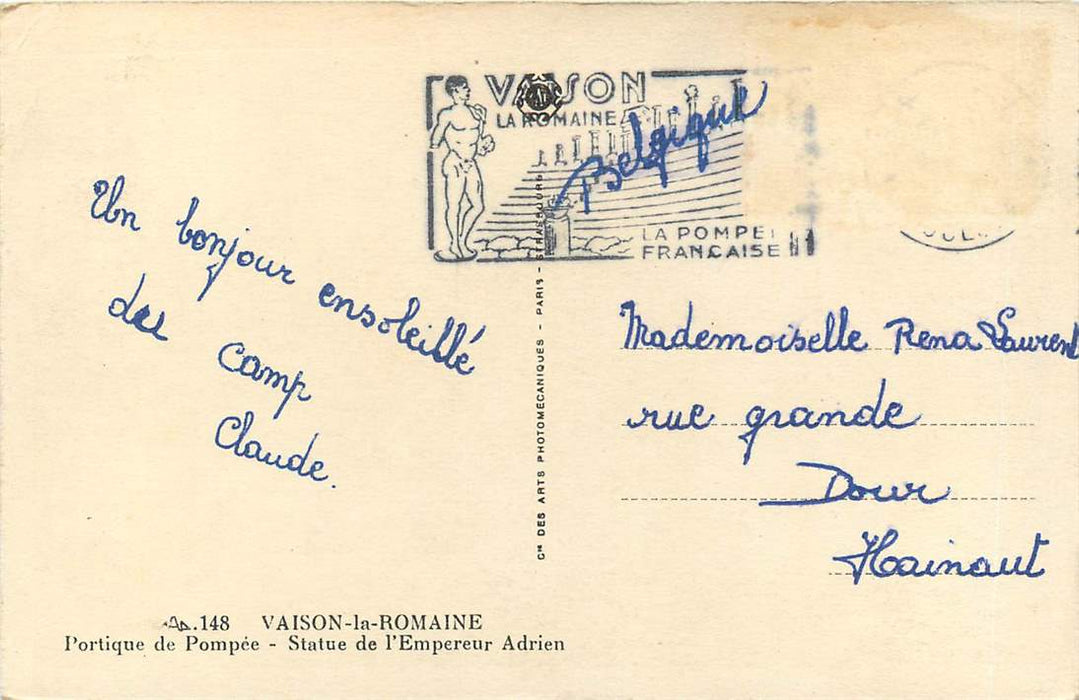 VAISON
LA ROMAINE
LA POMPEI
FRANÇAISE
Belgique
Un bonjour ensoleillé
du camp
Claude.
Mademoiselle Rena Laurent
rue grande
Dour
Hainaut
Cie DES ARTS PHOTOMÉCANIQUES - PARIS - STRASBOURG
148 VAISON-la-ROMAINE
Portique de Pompée - Statue de l'Empereur Adrien